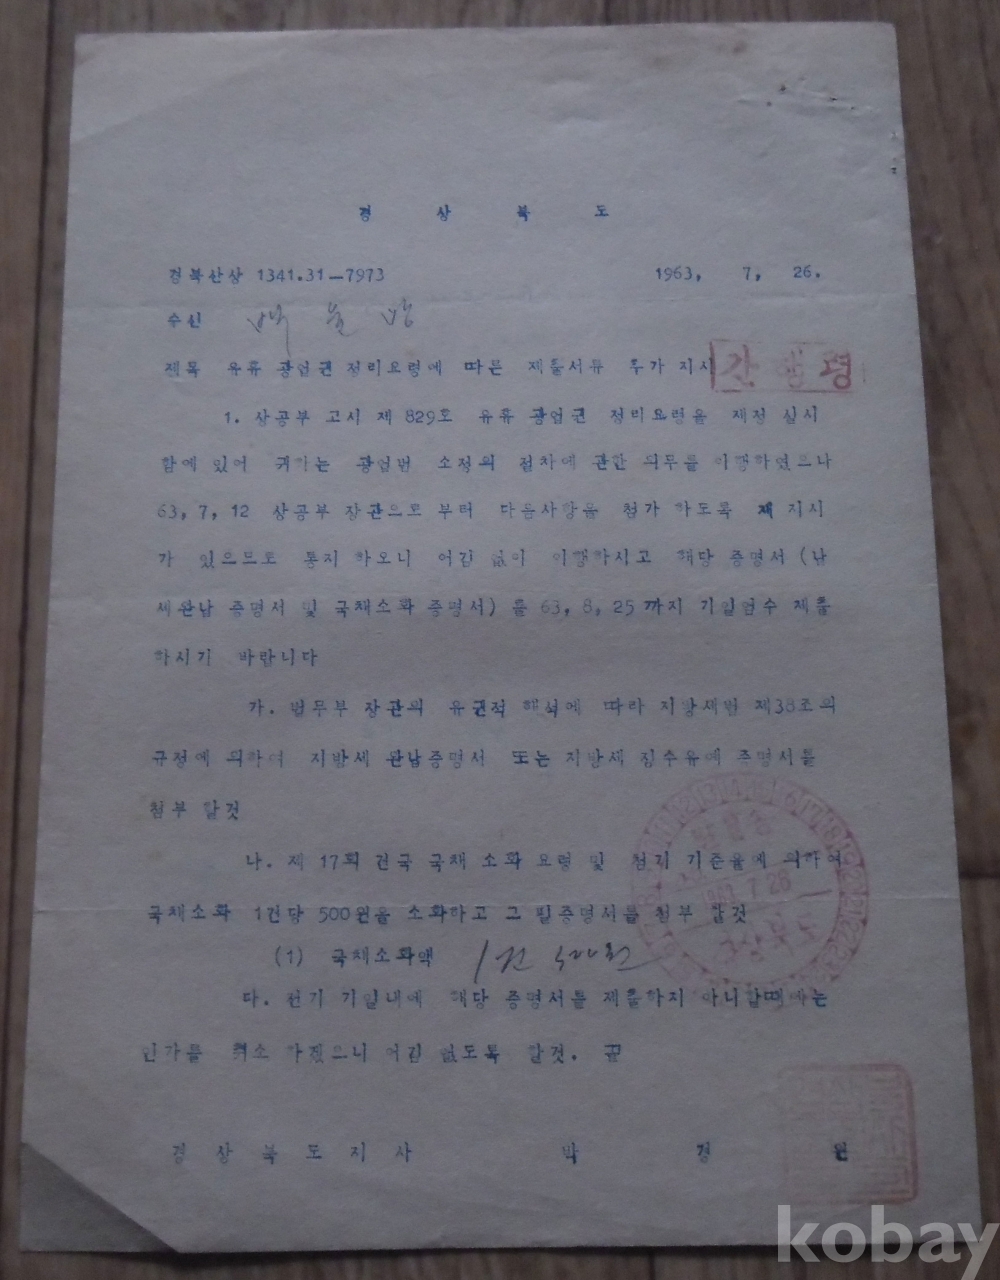 경 상 북 도
경북산상 1341.31-7973 1963, 7, 26.
수신
제목 유휴 광업권 정리요령에 따른 제출서류 추가 지시
1. 상공부 고시 제 829호 유휴 광업권 정리요령을 제정 실시
함에 있어 귀하는 광업법 소정의 절차에 관한 의무를 이행하였으나
63, 7, 12 상공부 장관으로 부터 다음사항을 첨가 하도록 재 지시
가 있으므로 통지 하오니 어김 없이 이행하시고 해당 증명서 (납
세완납 증명서 및 국채소화 증명서) 를 63, 8, 25 까지 기일엄수 제출
하시기 바랍니다
가. 법무부 장관의 유권적 해석에 따라 지방세법 제38조의
규정에 의하여 지방세 완납증명서 또는 지방세 징수유예 증명서를
첨부 할것
나. 제 17회 건국 국채 소화 요령 및 첨가 기준율에 의하여
국채소화 1건당 500원을 소화하고 그 필증명서를 첨부 할것
(1) 국채소화액 1건 500원
다. 전기 기일내에 해당 증명서를 제출하지 아니할때에는
인가를 취소 하겠으니 어김 없도록 할것. 끝
경 상 북 도 지 사 박 경 원
kobay